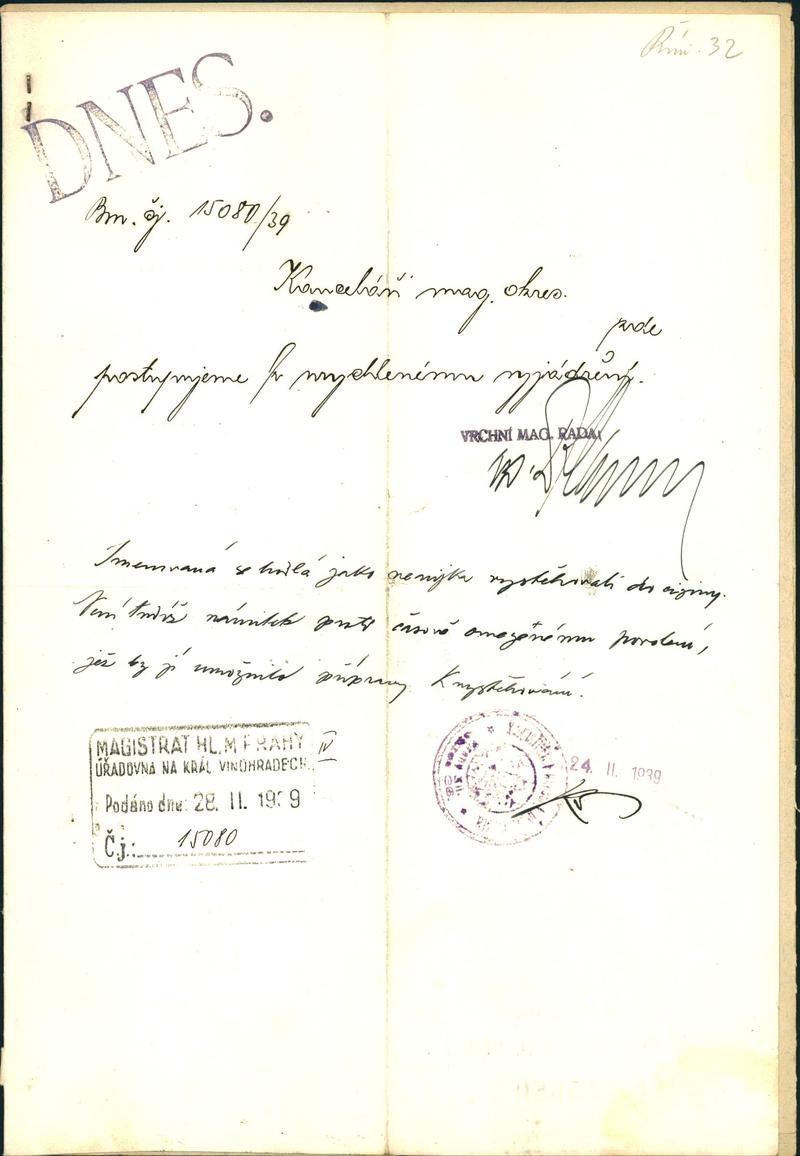 Řím. 32
DNES.
Bm. čj. 15080/39
Kanceláři mag. okres.
zde
postupujeme k urychlenému vyjádření.
VRCHNÍ MAG. RADA:
Jmenovaná se hodlá jako vystěhovati do ciziny.
Není tudíž námitek proti časově omezenému povolení,
jež by jí umožnilo přípravy k vystěhování.
MAGISTRÁT HL. M PRAHY IV
ÚŘADOVNA NA KRÁL VINOHRADECH.
Podáno dne: 28. II. 1939
Čj.: 15080
24. II. 1939